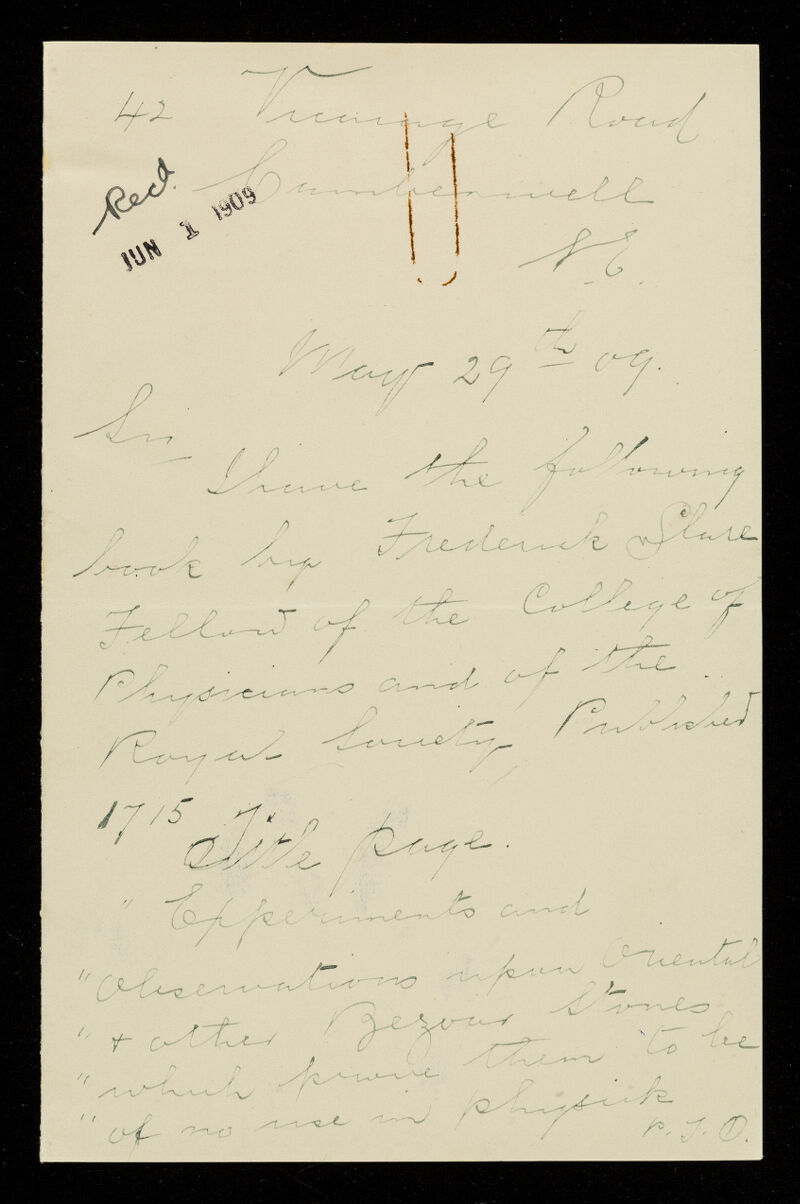 42 Vicarage Road
Camberwell
S.E.
Recd.
JUN 1 1909
May 29th 09.
Sir
I have the following
book by Frederick Slare
Fellow of the College of
Physicians and of the
Royal Society Published
1715
Title page.
"Experiments and
"Observations upon Oriental
"& other Bezoar Stones
"which prove them to be
"of no use in physick
P.T.O.